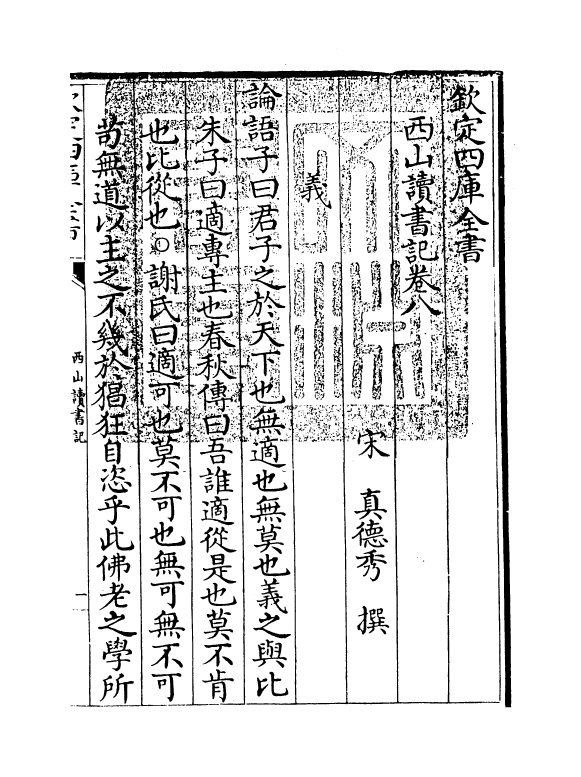 欽定四庫全書
西山讀書記卷八
宋　真德秀　撰
義
論語子曰君子之於天下也無適也無莫也義之與比
朱子曰適專主也春秋傳曰吾誰適從是也莫不肯
也比從也○謝氏曰適可也莫不可也無可無不可
苟無道以主之不幾於猖狂自恣乎此佛老之學所
西山讀書記
一